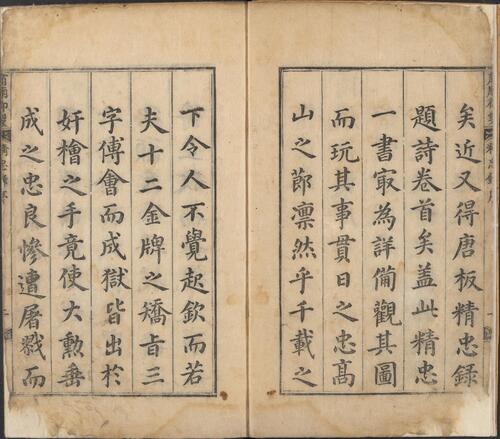 矣近又得唐板精忠錄
題詩卷首矣盖此精忠
一書㝡為詳備觀其圖
而玩其事貫日之忠髙
山之節凛然乎千載之
下令人不覺起欽而若
夫十二金牌之矯旨三
字傅會而成獄皆出於
奸檜之手竟使大勳垂
成之忠良慘遭屠戮而